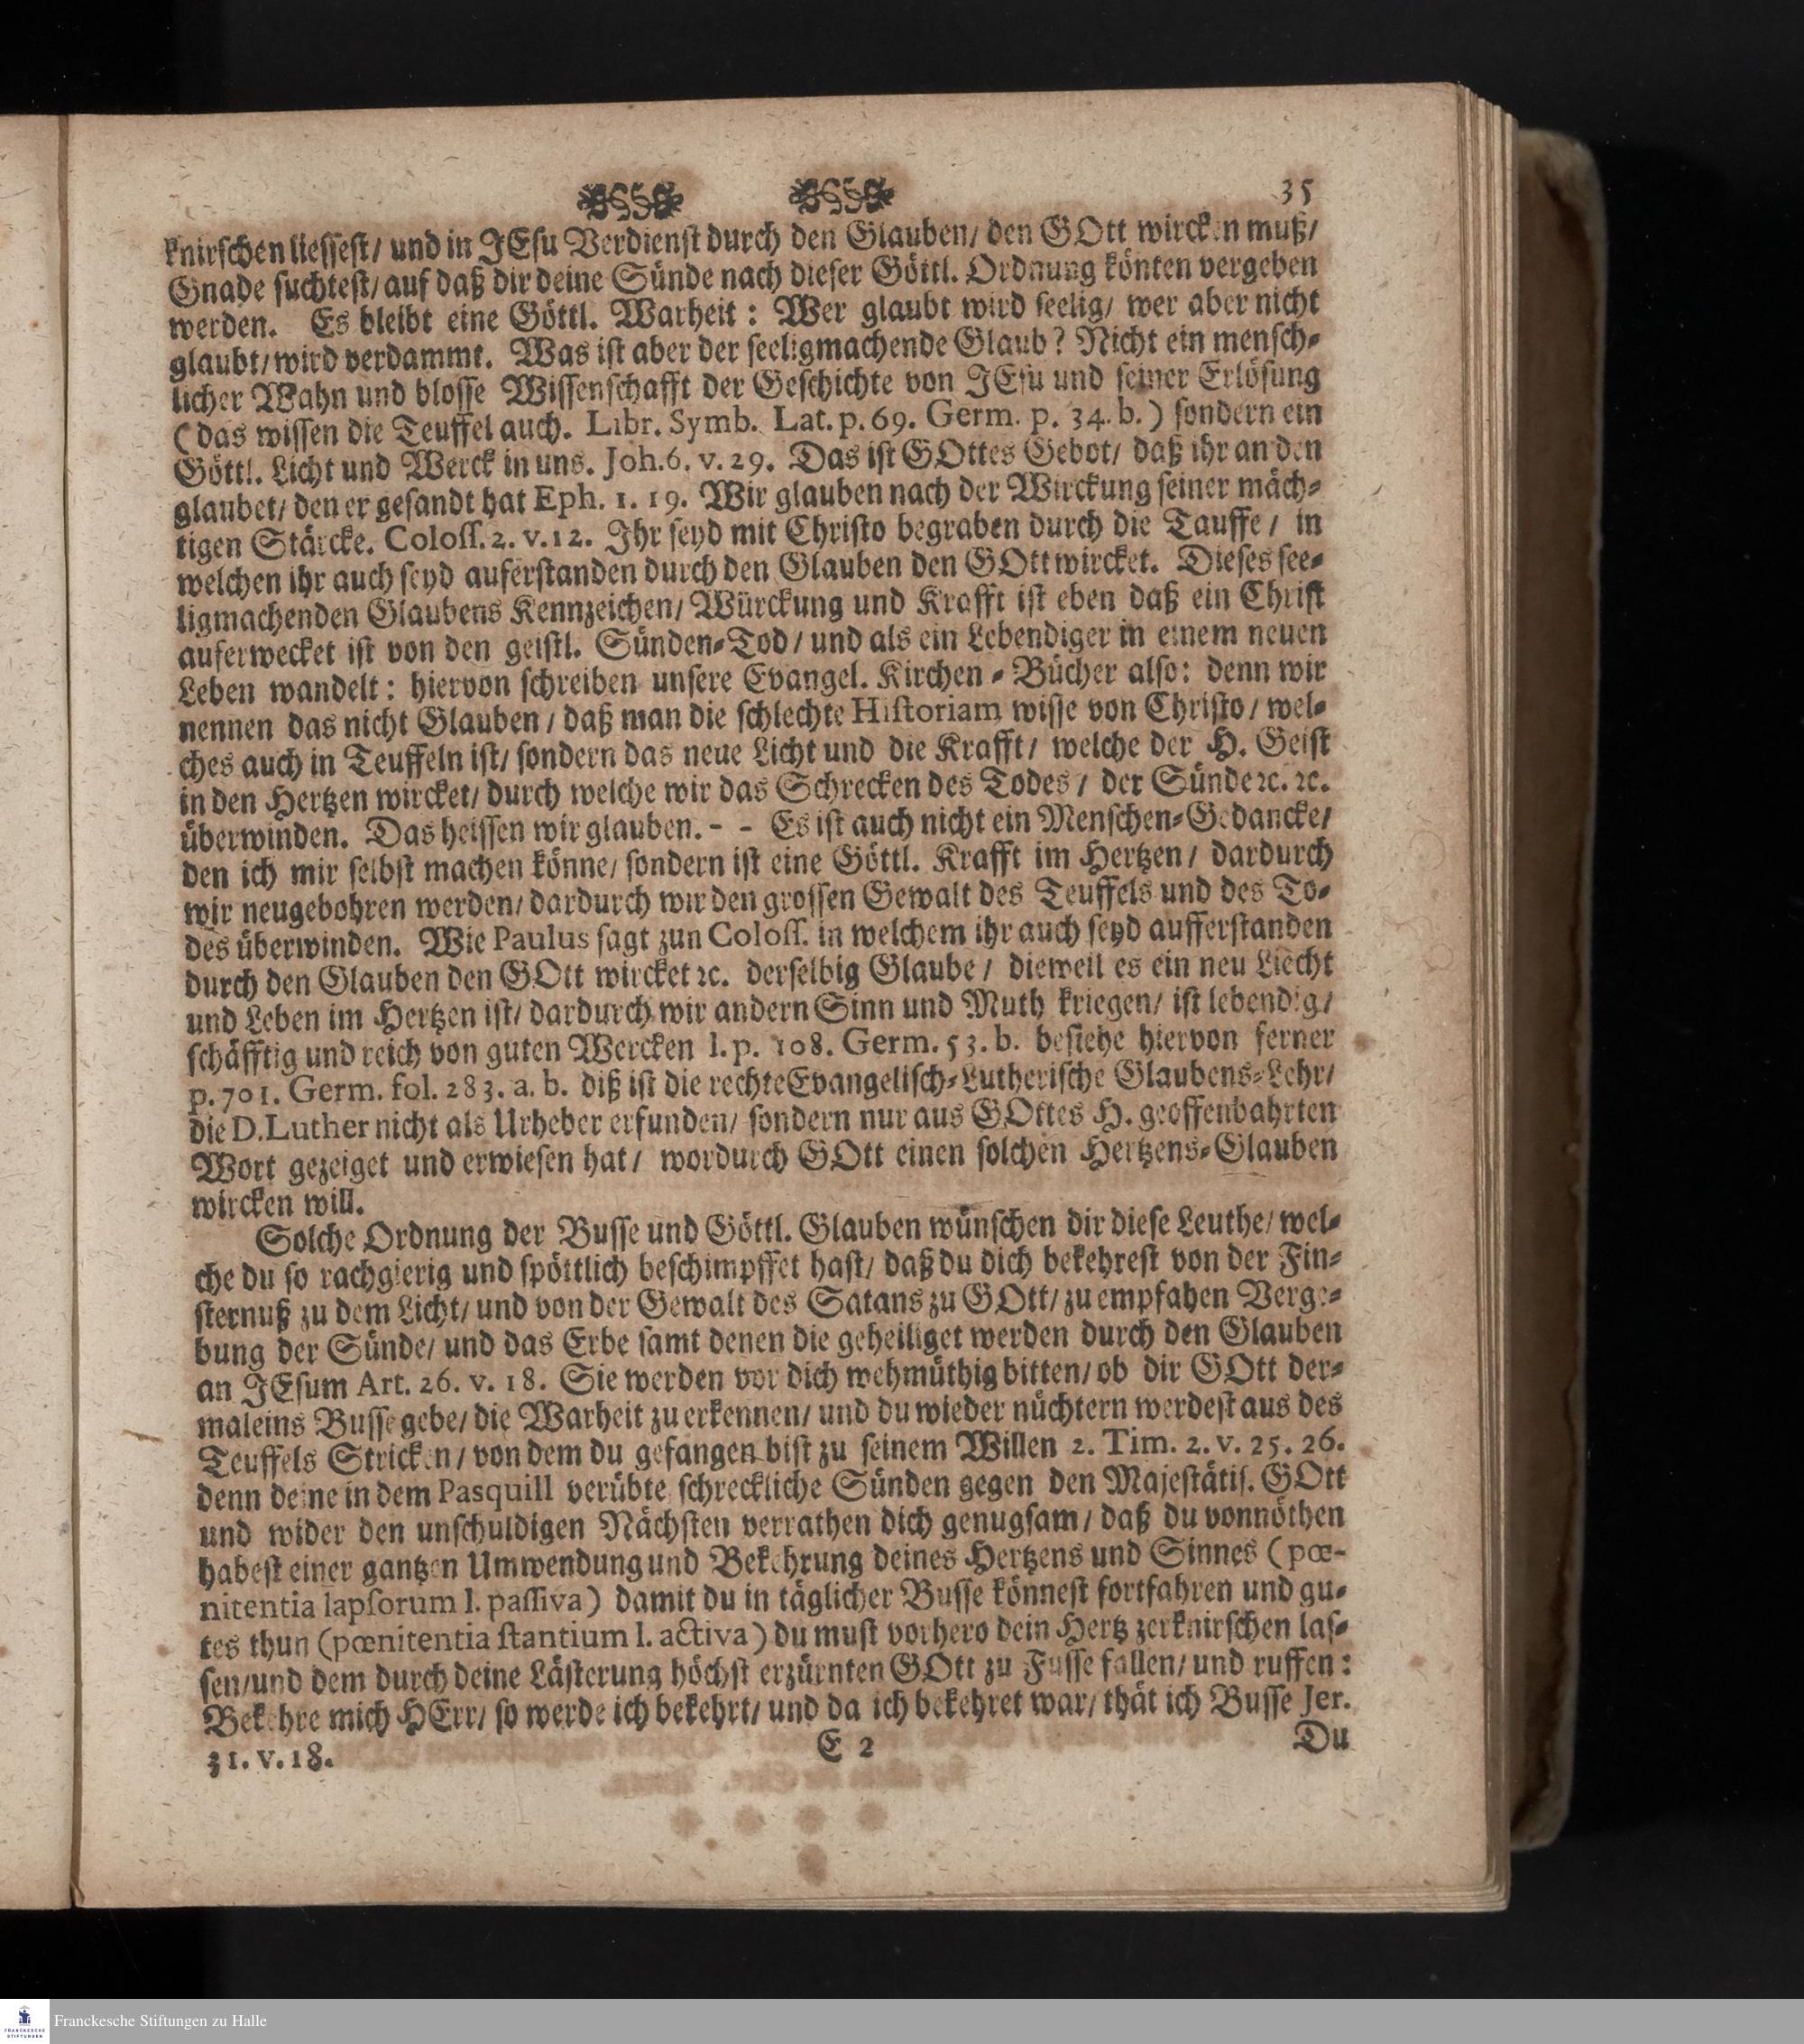 35
knirschen liessest/ und in JEsu Verdienst durch den Glauben/ den GOtt wircken muß/
Gnade suchtest/ auf daß dir deine Sünde nach dieser Göttl. Ordnung könten vergeben
werden. Es bleibt eine Göttl. Warheit: Wer glaubt wird seelig/ wer aber nicht
glaubt/ wird verdammt. Was ist aber der seeligmachende Glaub? Nicht ein mensch-
licher Wahn und blosse Wissenschafft der Geschichte von JEsu und seiner Erlösung
(das wissen die Teuffel auch. Libr. Symb. Lat. p. 69. Germ. p. 34. b.) sondern ein
Göttl. Licht und Werck in uns. Joh. 6. v. 29. Das ist GOttes Gebot/ daß ihr an den
glaubet/ den er gesandt hat Eph. 1. 19. Wir glauben nach der Wirckung seiner mäch-
tigen Stärcke. Coloss. 2. v. 12. Ihr seyd mit Christo begraben durch die Tauffe/ in
welchen ihr auch seyd auferstanden durch den Glauben den GOtt wircket. Dieses see-
ligmachenden Glaubens Kennzeichen/ Würckung und Krafft ist eben daß ein Christ
auferwecket ist von den geistl. Sünden-Tod/ und als ein Lebendiger in einem neuen
Leben wandelt: hiervon schreiben unsere Evangel. Kirchen-Bücher also: denn wir
nennen das nicht Glauben/ daß man die schlechte Historiam wisse von Christo/ wel-
ches auch in Teuffeln ist/ sondern das neue Licht und die Krafft/ welche der H. Geist
in den Hertzen wircket/ durch welche wir das Schrecken des Todes/ der Sünde ꝛc. ꝛc.
überwinden. Das heissen wir glauben. - - Es ist auch nicht ein Menschen-Gedancke/
den ich mir selbst machen könne/ sondern ist eine Göttl. Krafft im Hertzen/ dardurch
wir neugebohren werden/ dardurch wir den grossen Gewalt des Teuffels und des To-
des überwinden. Wie Paulus sagt zun Coloss. in welchem ihr auch seyd aufferstanden
durch den Glauben den GOtt wircket ꝛc. derselbig Glaube/ dieweil es ein neu Liecht
und Leben im Hertzen ist/ dardurch wir andern Sinn und Muth kriegen/ ist lebendig/
schäfftig und reich von guten Wercken l. p. 108. Germ. 53. b. besiehe hiervon ferner
p. 701. Germ. fol. 283. a. b. diß ist die rechte Evangelisch-Lutherische Glaubens-Lehr/
die D. Luther nicht als Urheber erfunden/ sondern nur aus GOttes H. geoffenbahrten
Wort gezeiget und erwiesen hat/ wordurch GOtt einen solchen Hertzens-Glauben
wircken will.
Solche Ordnung der Busse und Göttl. Glauben wünschen dir diese Leuthe/ wel-
che du so rachgierig und spöttlich beschimpffet hast/ daß du dich bekehrest von der Fin-
sternuß zu dem Licht/ und von der Gewalt des Satans zu GOtt/ zu empfahen Verge-
bung der Sünde/ und das Erbe samt denen die geheiliget werden durch den Glauben
an JEsum Art. 26. v. 18. Sie werden vor dich wehmüthig bitten/ ob dir GOtt der-
maleins Busse gebe/ die Warheit zu erkennen/ und du wieder nüchtern werdest aus des
Teuffels Stricken/ von dem du gefangen bist zu seinem Willen 2. Tim. 2. v. 25. 26.
denn deine in dem Pasquill verübte schreckliche Sünden gegen den Majestätis. GOtt
und wider den unschuldigen Nächsten verrathen dich genugsam/ daß du vonnöthen
habest einer gantzen Umwendung und Bekehrung deines Hertzens und Sinnes (pœ-
nitentia lapsorum l. passiva) damit du in täglicher Busse könnest fortfahren und gu-
tes thun (pœnitentia stantium l. activa) du must vorhero dein Hertz zerknirschen las-
sen/ und dem durch deine Lästerung höchst erzürnten GOtt zu Fusse fallen/ und ruffen:
Bekehre mich HErr/ so werde ich bekehrt/ und da ich bekehret war/ thät ich Busse Jer.
31. v. 18.
E 2
Du
Franckesche Stiftungen zu Halle